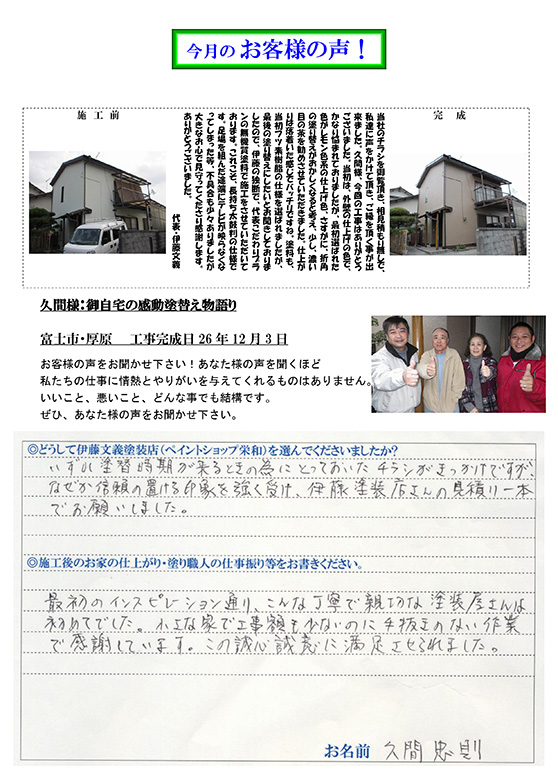 今月の お客様の声！
施 工 前
完　成
当社のチラシを御覧頂き、相見積もり無しで、
私達に声をかけて頂き、ご縁を頂く事が出
来ました。久間様、今回の工事はありがとう
ございました。当初は、外壁の仕上げの色で、
かなり悩まれておりましたが、最初選ばれた
色がレモン色系の仕上げ色、さすがに、折角
の塗り替えがおかしくなると考え、少し、濃い
目の茶を勧めさせていただきました。仕上が
りは落着いた感じでバッチリですね。塗料も、
当初フッソ樹脂の仕様を選ばれましたが、
最後の塗り替えにしたいとお聞きしておりま
したので、伊藤の独断で、代表こだわりプラ
ンの無機質塗料で施工をさせていただいて
おります。これこそ、長持ち太鼓判の仕様で
す。足場を組んだ達端にテレビが映らなくな
ってしまった等、不具合も少々ありましたが
大きなお心で見守ってくださり感謝します。
ありがとうございました。
代表・伊藤文義
久間様：御自宅の感動塗替え物語り
富士市・厚原　工事完成日26年12月3日
お客様の声をお聞かせ下さい！あなた様の声を聞くほど
私たちの仕事に情熱とやりがいを与えてくれるものはありません。
いいこと、悪いこと、どんな事でも結構です。
ぜひ、あなた様の声をお聞かせ下さい。
◎どうして伊藤文義塗装店（ペイントショップ栄和）を選んでくださいましたか？
いずれ塗替時期が来るときの為にとっておいたチラシがきっかけですが、
なぜか信頼の置ける印象を強く受け、伊藤塗装店さんの見積り一本
でお願いしました。
◎施工後のお家の仕上がり・塗り職人の仕事振り等をお書きください。
最初のインスピレーション通り、こんな丁寧で親切な塗装店さんは
初めてでした。小さな家で工事額も少ないのに手抜きのない作業
で感謝しています。この誠心誠意に満足させられました。
お名前　久間 忠則